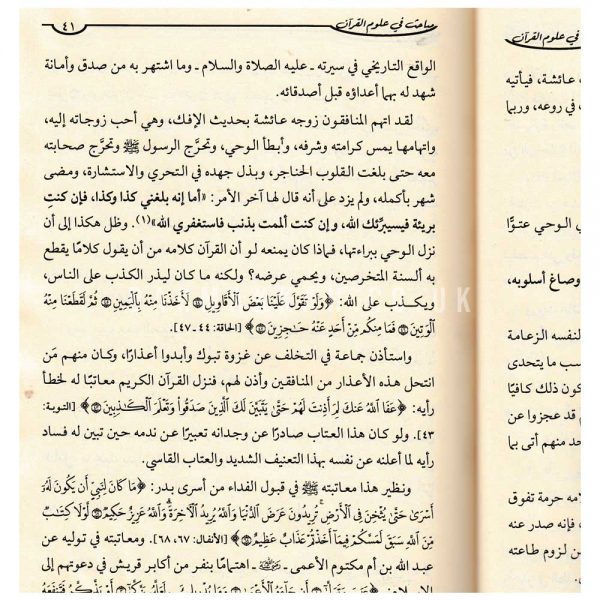 مباحث في علوم القرآن ٤١
الواقع التاريخي في سيرته ـ عليه الصلاة والسلام ـ وما اشتهر به من صدق وأمانة
شهد له بهما أعداؤه قبل أصدقائه.
لقد اتهم المنافقون زوجه عائشة بحديث الإفك، وهي أحب زوجاته إليه،
واتهامها يمس كرامته وشرفه، وأبطأ الوحي، وتحرَّج الرسول ﷺ وتحرَّج صحابته
معه حتى بلغت القلوب الحناجر، وبذل جهده في التحري والاستشارة، ومضى
شهر بأكمله، ولم يزد على أنه قال لها آخر الأمر: «أما إنه بلغني كذا وكذا، فإن كنتِ
بريئة فسيبرِّئك الله، وإن كنت ألممت بذنب فاستغفري الله»(١). وظل هكذا إلى أن
نزل الوحي ببراءتها، فماذا كان يمنعه لو أن القرآن كلامه من أن يقول كلامًا يقطع
به ألسنة المتخرصين، ويحمي عرضه؟ ولكنه ما كان ليذر الكذب على الناس،
ويكذب على الله: ﴿وَلَوْ تَقَوَّلَ عَلَيْنَا بَعْضَ الْأَقَاوِيلِ ۝ لَأَخَذْنَا مِنْهُ بِالْيَمِينِ ۝ ثُمَّ لَقَطَعْنَا مِنْهُ
الْوَتِينَ ۝ فَمَا مِنكُم مِّنْ أَحَدٍ عَنْهُ حَاجِزِينَ ۝﴾ [الحاقة: ٤٤ - ٤٧].
واستأذن جماعة في التخلف عن غزوة تبوك وأبدوا أعذارًا، وكان منهم مَن
انتحل هذه الأعذار من المنافقين وأذن لهم، فنزل القرآن الكريم معاتبًا له لخطأ
رأيه: ﴿عَفَا اللَّهُ عَنكَ لِمَ أَذِنتَ لَهُمْ حَتَّىٰ يَتَبَيَّنَ لَكَ الَّذِينَ صَدَقُوا وَتَعْلَمَ الْكَاذِبِينَ ۝﴾ [التوبة:
٤٣]. ولو كان هذا العتاب صادرًا عن وجدانه تعبيرًا عن ندمه حين تبين له فساد
رأيه لما أعلنه عن نفسه بهذا التعنيف الشديد والعتاب القاسي.
ونظير هذا معاتبته ﷺ في قبول الفداء من أسرى بدر: ﴿مَا كَانَ لِنَبِيٍّ أَن يَكُونَ لَهُ
أَسْرَىٰ حَتَّىٰ يُثْخِنَ فِي الْأَرْضِ تُرِيدُونَ عَرَضَ الدُّنْيَا وَاللَّهُ يُرِيدُ الْآخِرَةَ وَاللَّهُ عَزِيزٌ حَكِيمٌ ۝ لَّوْلَا كِتَابٌ
مِّنَ اللَّهِ سَبَقَ لَمَسَّكُمْ فِيمَا أَخَذْتُمْ عَذَابٌ عَظِيمٌ ۝﴾ [الأنفال: ٦٧، ٦٨]. ومعاتبته في توليه عن
عبد الله بن أم مكتوم الأعمى ـ رضي الله عنه ـ اهتمامًا بنفر من أكابر قريش في دعوتهم إلى
في علوم القرآن
عائشة، فيأتيه
في روعه، وربما
الوحي عتوًّا
وصاغ أسلوبه،
لنفسه الزعامة
سب ما يتحدى
كون ذلك كافيًا
قد عجزوا عن
حد منهم أتى بما
لامه حرمة تفوق
، فإنه صدر عنه
ن لزوم طاعته